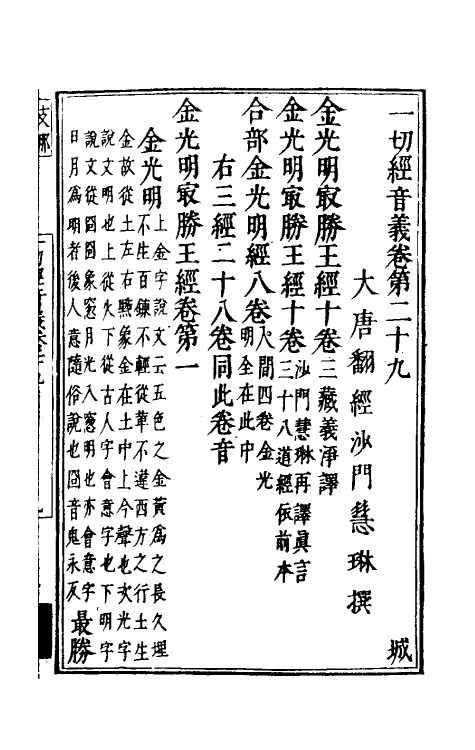 一切經音義卷第二十九
城
大唐翻經沙門慧琳撰
金光明㝡勝王經十卷三藏義淨譯
金光明㝡勝王經十卷沙門慧琳再譯眞言三十八道經依前本
合部金光明經八卷人間四卷金光明全在此中
右三經二十八卷同此卷音
金光明㝡勝王經卷第一
金光明上金字說文云五色之金黃爲之長久埋不生百鍊不輕從革不違西方之行土生
金故從土左右點象金在土中上今聲也次光字說文明也上從火下從古人字會意字也下明字
說文從囧囧象窓月光入窓明也亦會意字日月爲明者後人意隨俗說也囧音鬼永反最勝